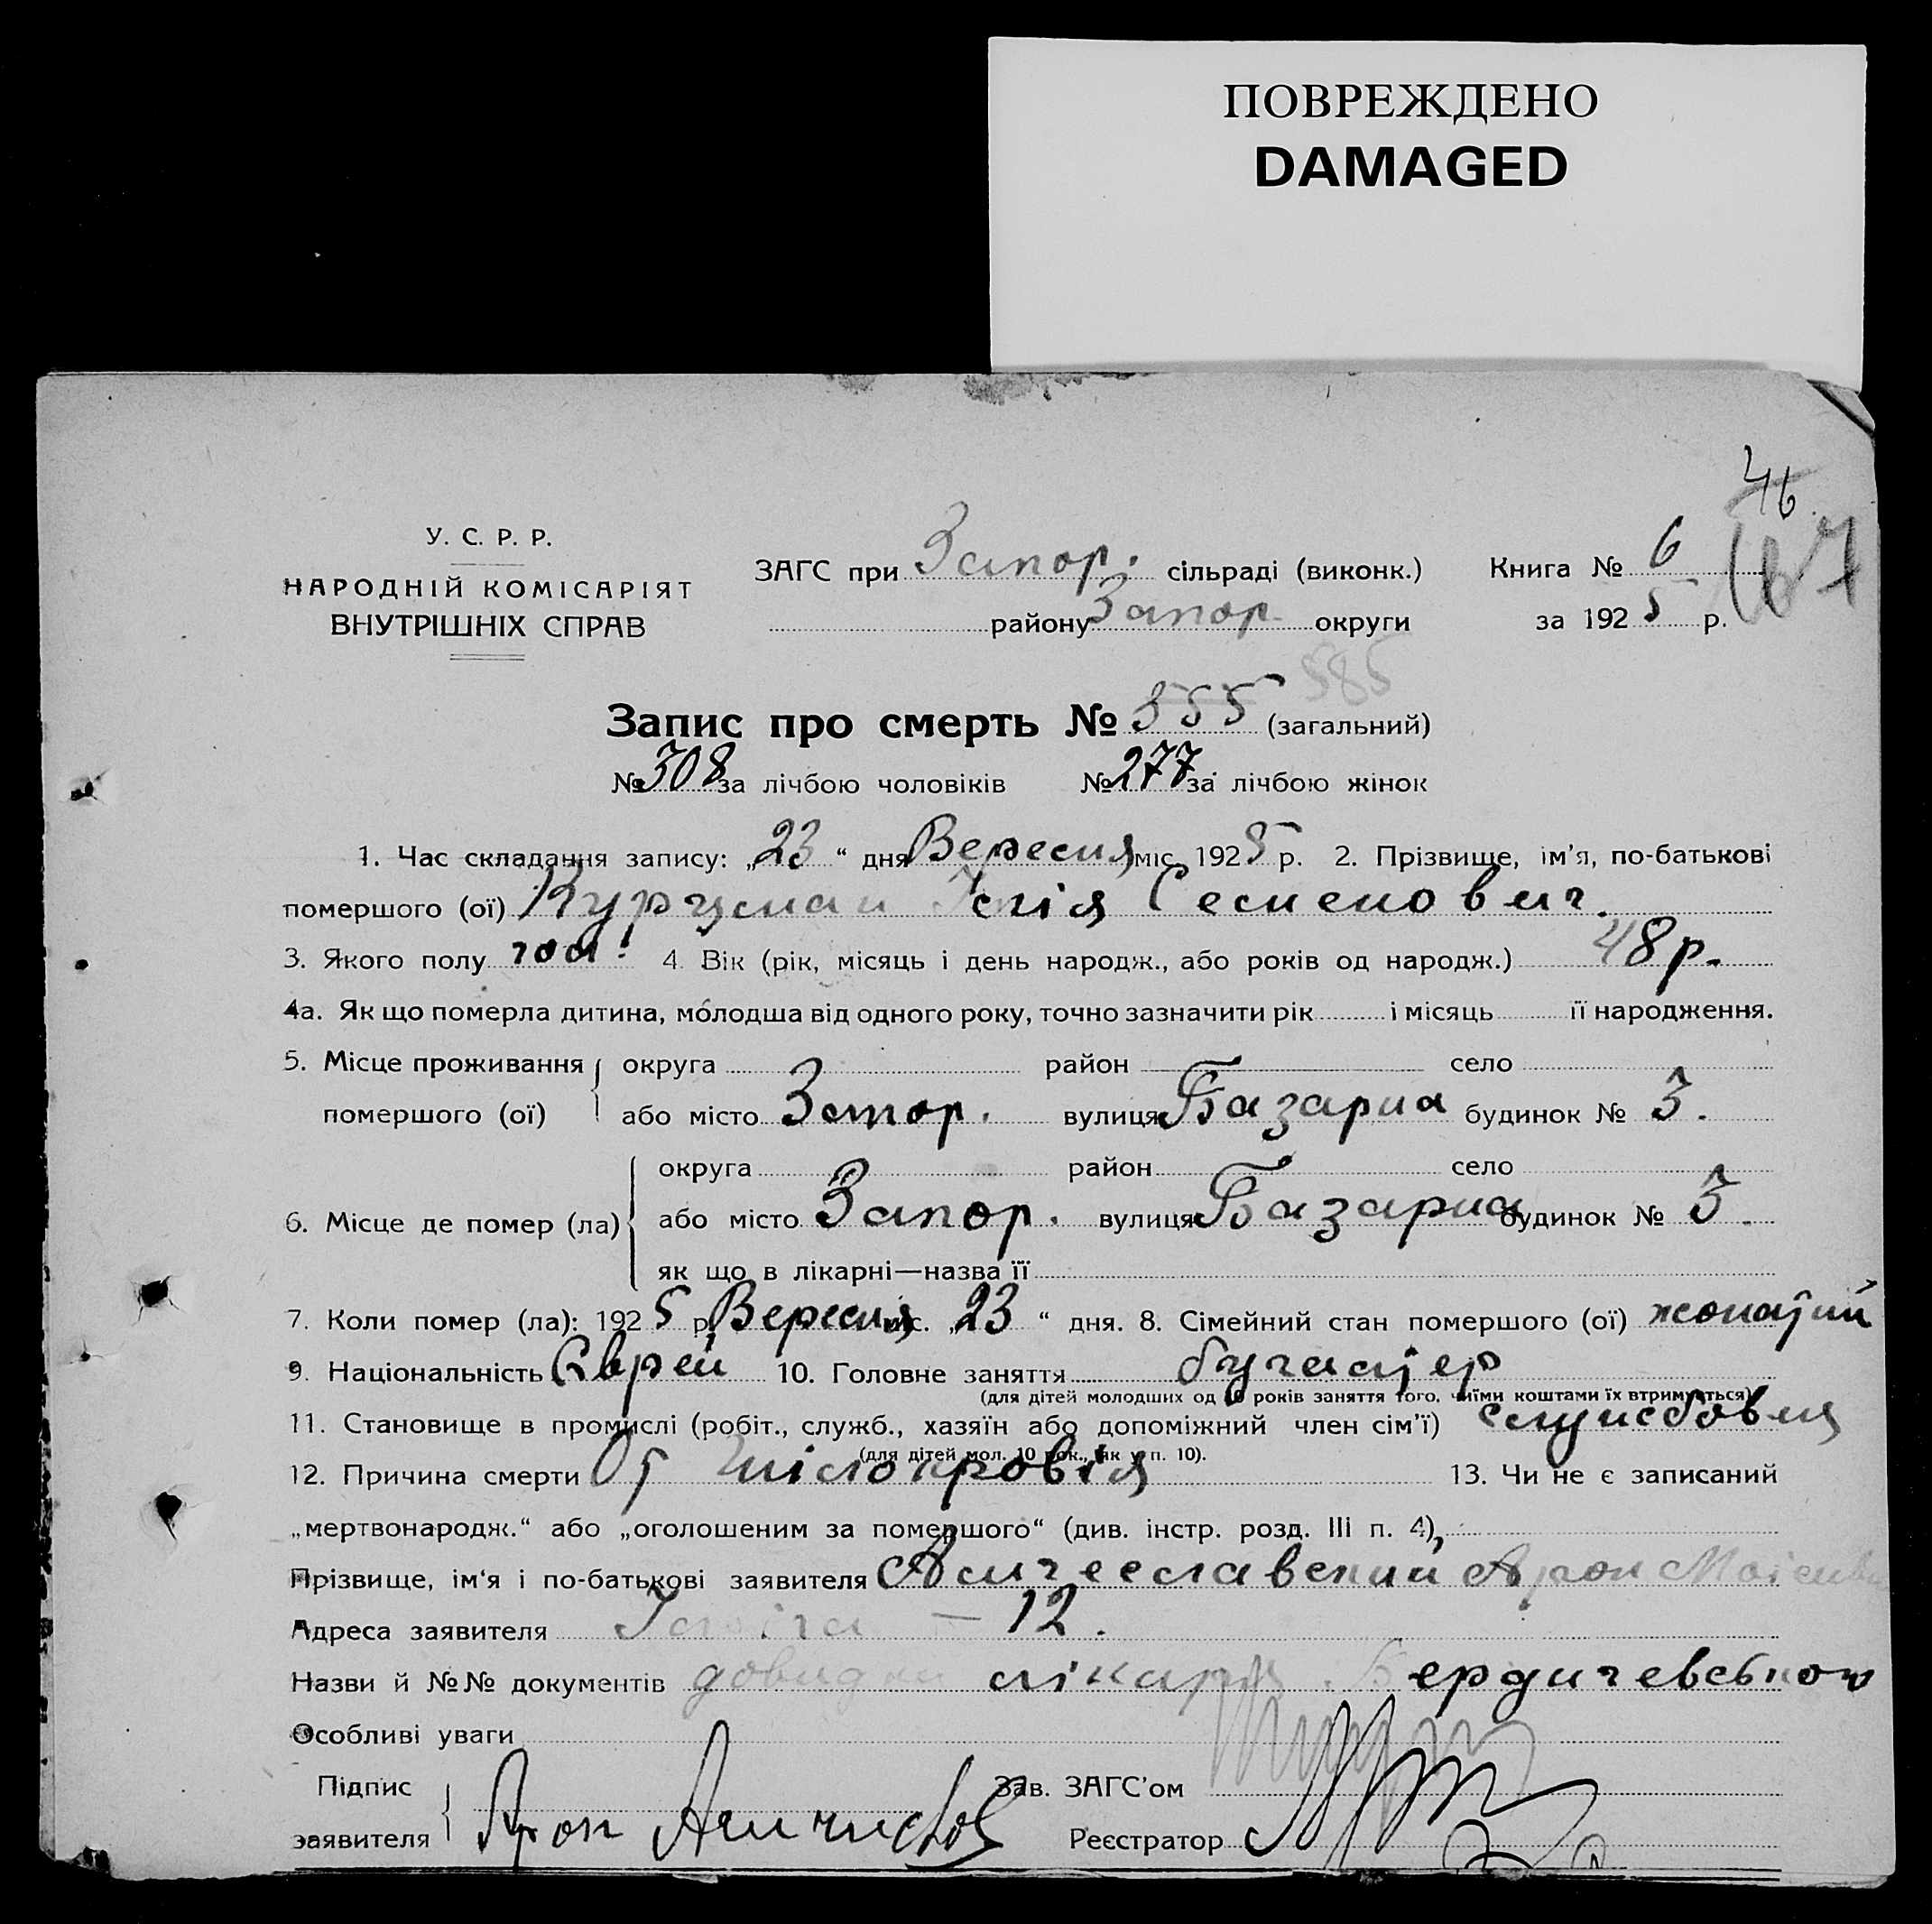 ПОВРЕЖДЕНО
DAMAGED
46
У. С. Р. Р.
НАРОДНІЙ КОМІСАРІЯТ
ВНУТРІШНІХ СПРАВ
ЗАГС при Запор. сільраді (виконк.)
району Запор. округи
Книга № 6
за 1925 р.
167
585
Запис про смерть № 355 (загальний)
№ 308 за лічбою чоловіків № 277 за лічбою жінок
1. Час складання запису: „23“ дня Вересня міс. 1925 р. 2. Прізвище, ім’я, по-батькові
помершого (ої) Курцман Ілія Семенович.
3. Якого полу чол. 4. Вік (рік, місяць і день народж., або років од народж.) 48 р.
4а. Як що померла дитина, молодша від одного року, точно зазначити рік і місяць її народження.
5. Місце проживання округа район село
помершого (ої) або місто Запор. вулиця Базарна будинок № 3.
округа район село
6. Місце де помер (ла) або місто Запор. вулиця Базарна будинок № 3.
як що в лікарні—назва її
7. Коли помер (ла): 1925 р. Вересня міс. „23“ дня. 8. Сімейний стан помершого (ої) жонатий
9. Національність Єврей 10. Головне заняття
(для дітей молодших од 10 років заняття того, чиїми коштами їх втримується)
11. Становище в промислі (робіт., служб., хазяїн або допоміжний член сім’ї)
(для дітей мол. 10 рок., як у п. 10).
12. Причина смерти От білокровія 13. Чи не є записаний
„мертвонародж.“ або „оголошеним за помершого“ (див. інстр. розд. III п. 4),
Прізвище, ім‘я і по-батькові заявителя Арон
Адреса заявителя — 12.
Назви й №№ документів довидка лікаря Бердичевською
Особливі уваги
Підпис Зав. ЗАГС’ом
заявителя Арон Реєстратор